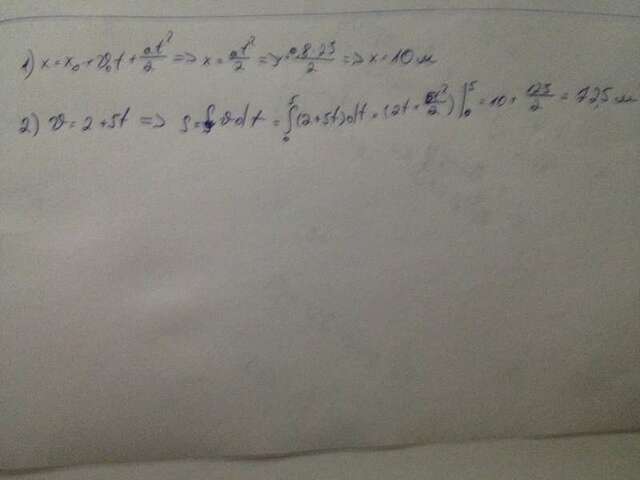 1) x = x₀ + v₀t + at²/2 => x = at²/2 => x = 0,8·25/2 => x = 10 м
2) v = 2 + 5t => S = ∫ v dt = ∫₀⁵ (2+5t)dt = (2t + 5t²/2)|₀⁵ = 10 + 125/2 = 72,5 м